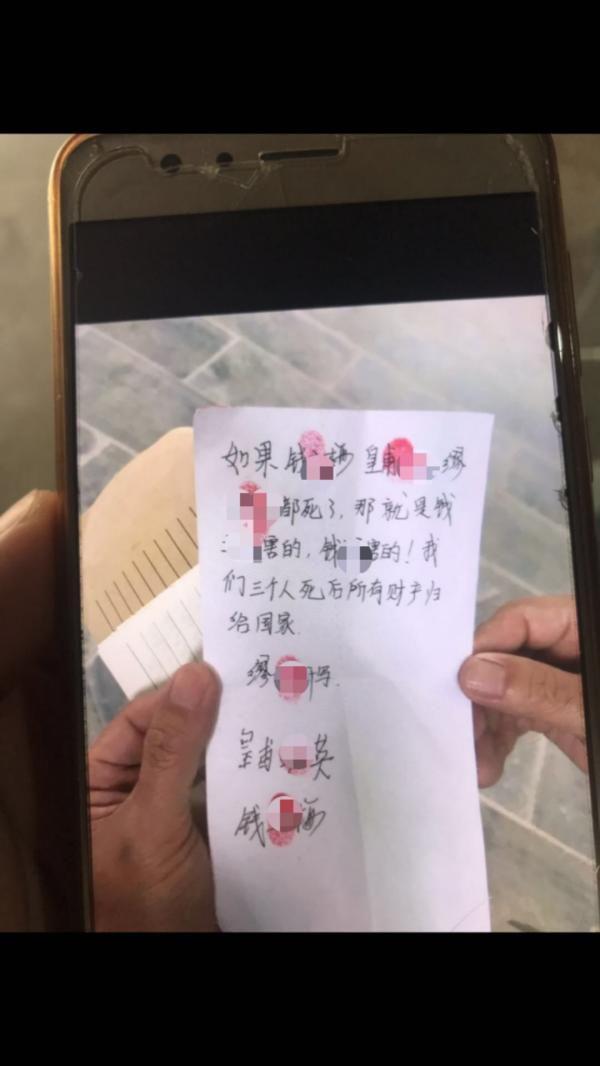 如果钱 梅 皇甫 缪
都死了，那就是钱
害的，钱 害的！我
们三个人死后所有财产归
给国家.
缪 写.
皇甫 英
钱 梅